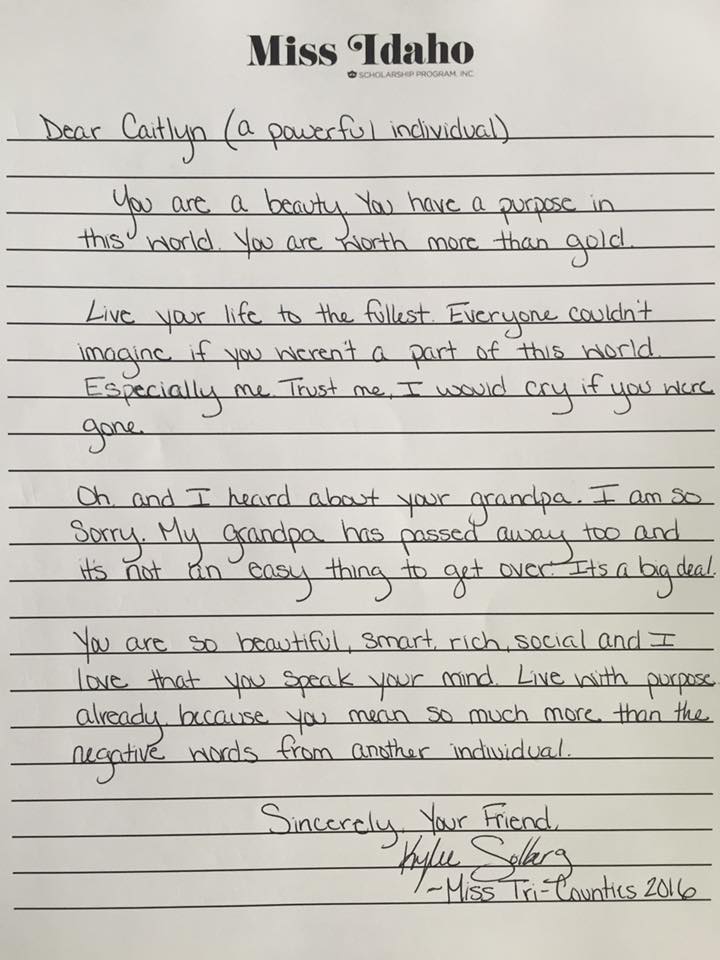 Miss Idaho
SCHOLARSHIP PROGRAM, INC.
Dear Caitlyn (a powerful individual)
You are a beauty. You have a purpose in
this world. You are worth more than gold.
Live your life to the fullest. Everyone couldn't
imagine if you weren't a part of this world.
Especially me. Trust me, I would cry if you were
gone.
Oh, and I heard about your grandpa. I am so
Sorry. My grandpa has passed away too and
it's not an easy thing to get over. Its a big deal.
You are so beautiful, smart, rich, social and I
love that you speak your mind. Live with purpose
already, because you mean so much more than the
negative words from another individual.
Sincerely, Your Friend,
Kylee Solberg
~Miss Tri-Counties 2016